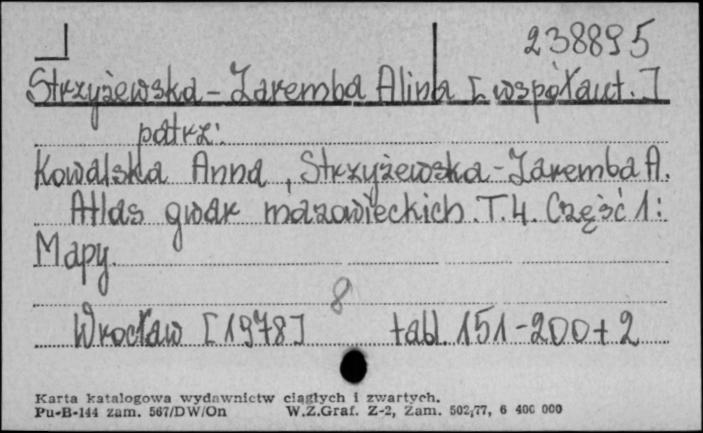 238895
Strzyżewska-Zaremba Alina [współaut.]
patrz:
Kowalska Anna, Strzyżewska-Zaremba A.
Atlas gwar mazowieckich. T.4. Część 1:
Mapy.
8
Wrocław [1978] tabl. 151-200+2
Karta katalogowa wydawnictw ciągłych i zwartych.
Pu-B-144 zam. 567/DW/On W.Z.Graf. Z-2, Zam. 502/77, 6 400 000